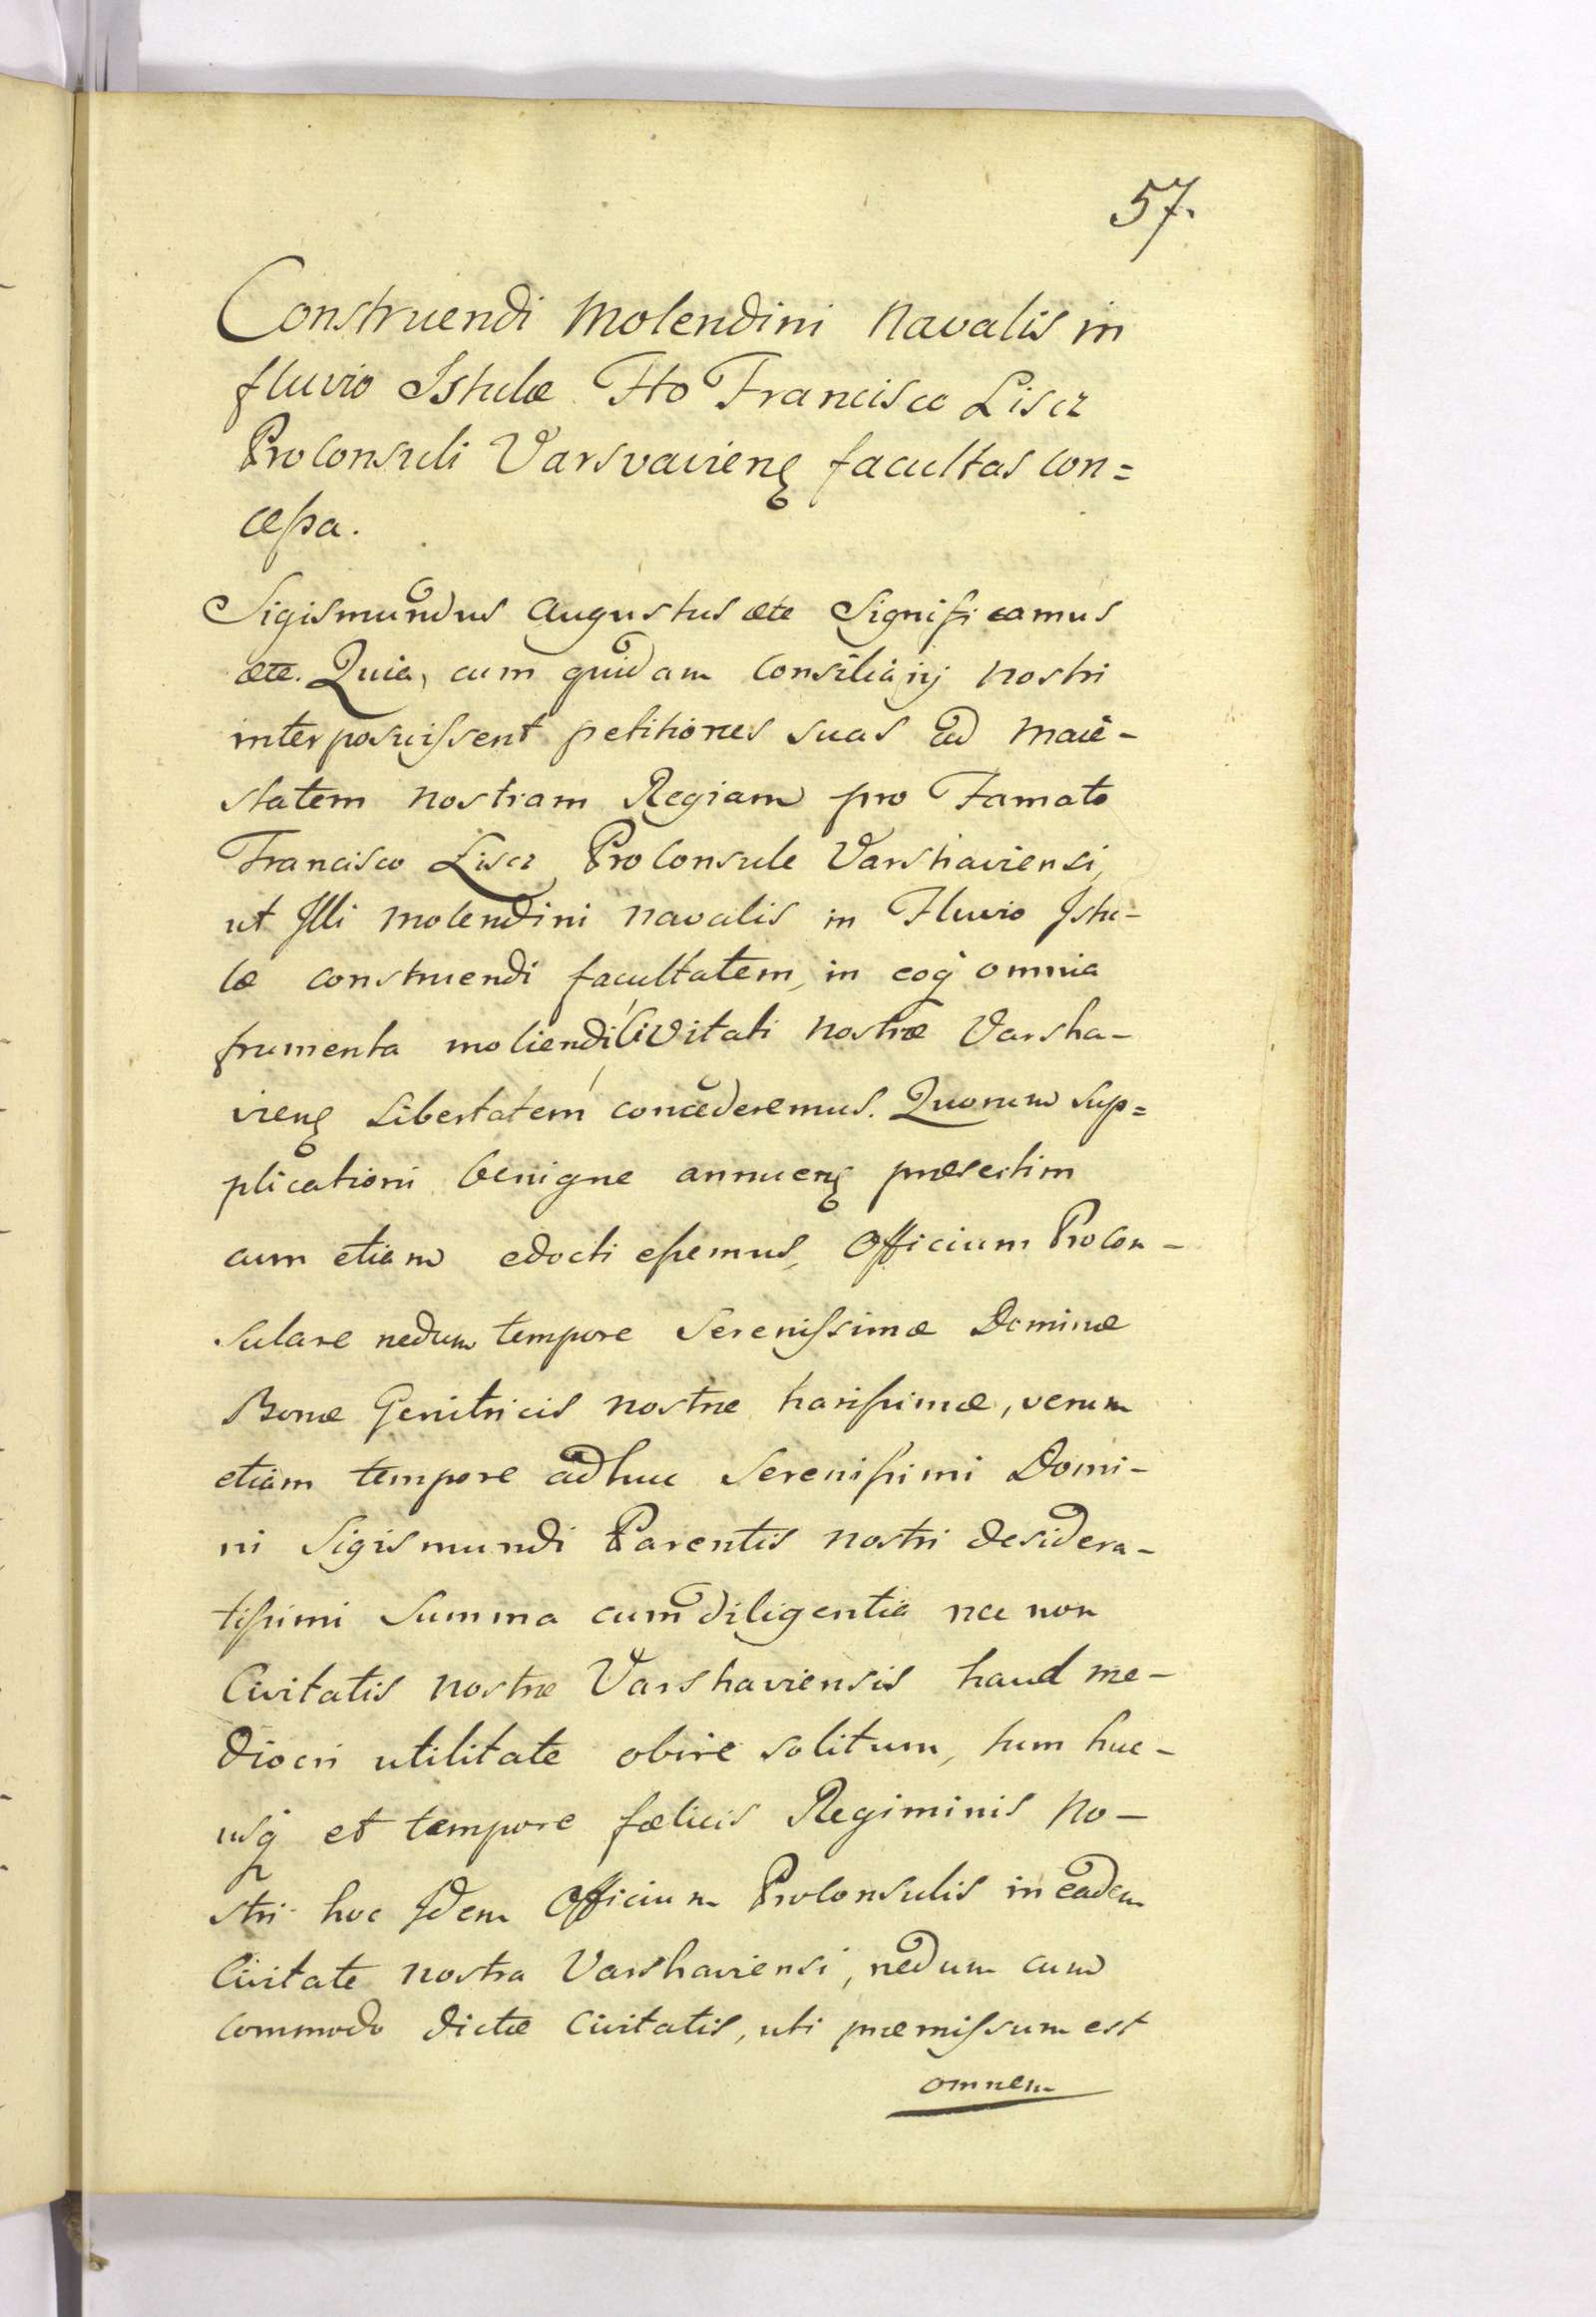 57.
Construendi Molendini Navalis in
fluvio Istulæ Ftto Francisco Liscz
ProConsuli Varsvavienꝫ facultas con=
cessa.
Sigismundus Augustus ætc Significamus
ætc. Quia, cum quidam Consiliarij nostri
interposuissent petitiones suas ad Maie-
statem nostram Regiam pro Famato
Francisco Liscz ProConsule Varshaviensi,
ut Illi molendini navalis in Fluvio Istu-
læ construendi facultatem, in eoq omnia
frumenta moliendi Civitati nostræ Varsha-
vienꝫ Libertatem concederemus. Quorum sup=
plicationi benigne annuenꝫ præsertim
cum etiam edocti essemus, Officium Procon-
sulare nedum tempore Serenissimæ Dominæ
Bonæ Genitricis nostræ harissimæ, verum
etiam tempore adhuc Serenissimi Domi-
ni Sigismundi Parentis nostri desidera-
tissimi Summa cum diligentia nec non
Civitatis nostræ Varshaviensis haud me-
diocri utilitate obire solitum, tum huc-
usq et tempore fœlicis Regiminis No-
stri hoc Idem Officium Proconsulis in eadem
Civitate nostra Varshaviensi, nedum cum
commodo dictæ Civitatis, uti præmissum est
omnem